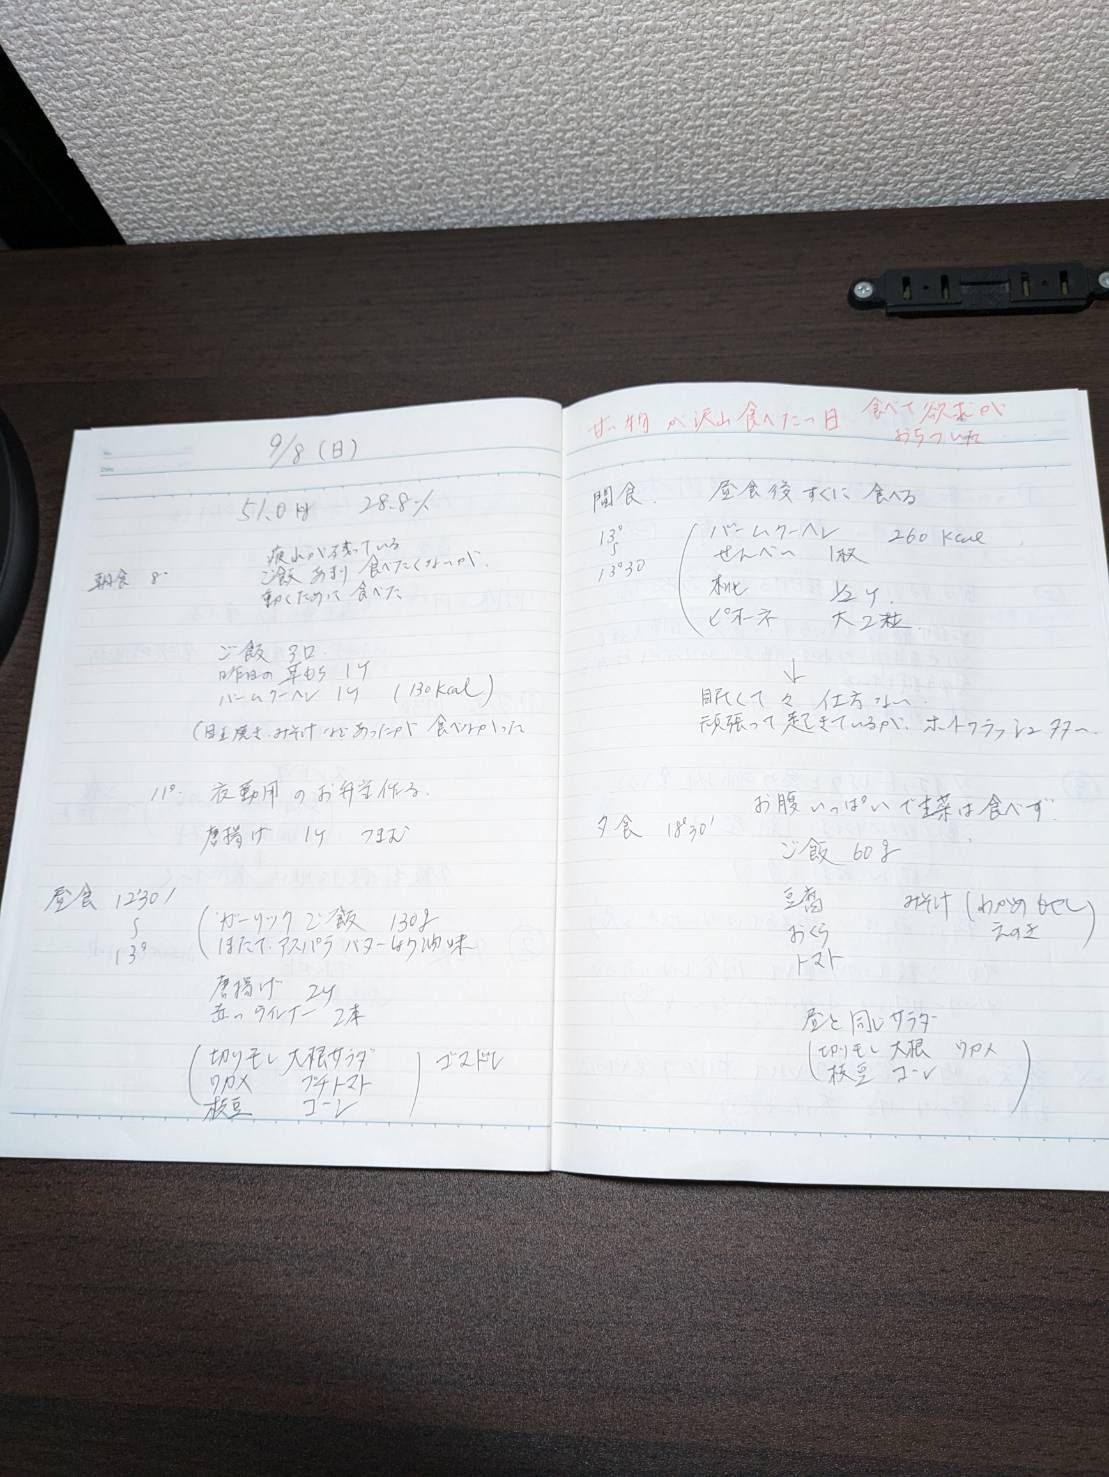 9/8 (日)
51.0kg 28.8%
疲れが残っている
朝食 8°
ご飯 あまり 食べたくないが
動くために 食べた
ご飯 3口
昨日の 草もち 1ケ
バームクーヘン 1ケ (130kcal)
(目玉焼き、みそ汁 などあったが 食べなかった
11° 夜勤用 のお弁当作る
唐揚げ 1ケ つまむ
昼食 12°30'
〜
13°
ガーリック ご飯 130g
ほたて、アスパラ バターしょう油味
唐揚げ 2ケ
赤いウィンナー 2本
(切りモし 大根サラダ
ワカメ プチトマト
枝豆 コーン) ゴマドレ
甘い物 が沢山 食べたい日 食べて 欲求が
おちついた
間食 昼食後 すぐに 食べる
13°
〜
13°30
(バームクーヘン 260 kcal
せんべい 1枚
桃 1/2ケ
ピオーネ 大2粒
↓
眠くて々 仕方ない
頑張って 起きているが、ホットフラッシュ 多々
お腹いっぱいで 生菜は食べず
夕食 18°30'
ご飯 60g
豆腐 みそ汁 (わかめ もやし
おくら えのき)
トマト
昼と 同じサラダ
(切りモし 大根 ワカメ
枝豆 コーン)